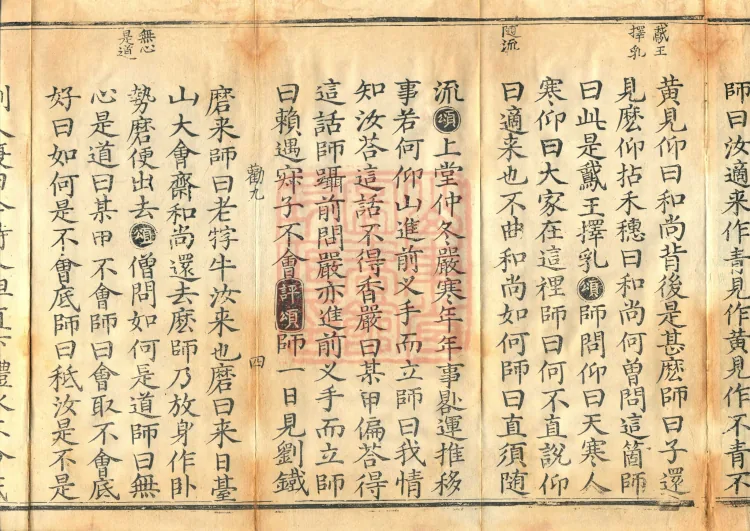 師曰汝適来作青見作黄見作不青不
鵞王
擇乳
黄見仰曰和尚背後是甚麽師曰子還
見麽仰拈禾穗曰和尚何曾問這箇師
曰此是鵞王擇乳頌師問仰曰天寒人
寒仰曰大家在這裡師曰何不直說仰
隨流
曰適来也不曲和尚如何師曰直須隨
流頌上堂仲冬嚴寒年年事晷運推移
事若何仰山進前义手而立師曰我情
知汝荅這話不得香嚴曰某甲偏荅得
這話師躡前問嚴亦進前义手而立師
曰賴遇寂子不會評頌師一日見劉鐵
勸九 四
磨来師曰老牸牛汝来也磨曰来日臺
山大會齋和尚還去麽師乃放身作卧
無心
是道
勢磨便出去頌僧問如何是道師曰無
心是道曰某甲不會師曰會取不會底
好曰如何是不會底師曰秪汝是不是